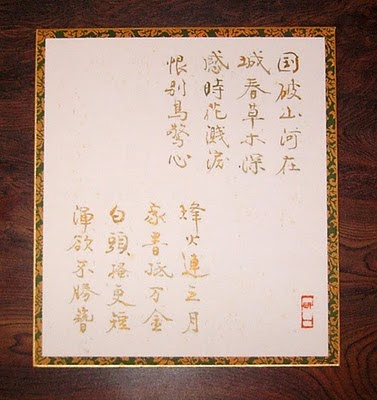 国破山河在
城春草木深
感時花濺涙
恨別鳥驚心
烽火連三月
家書抵万金
白頭掻更短
渾欲不勝簪